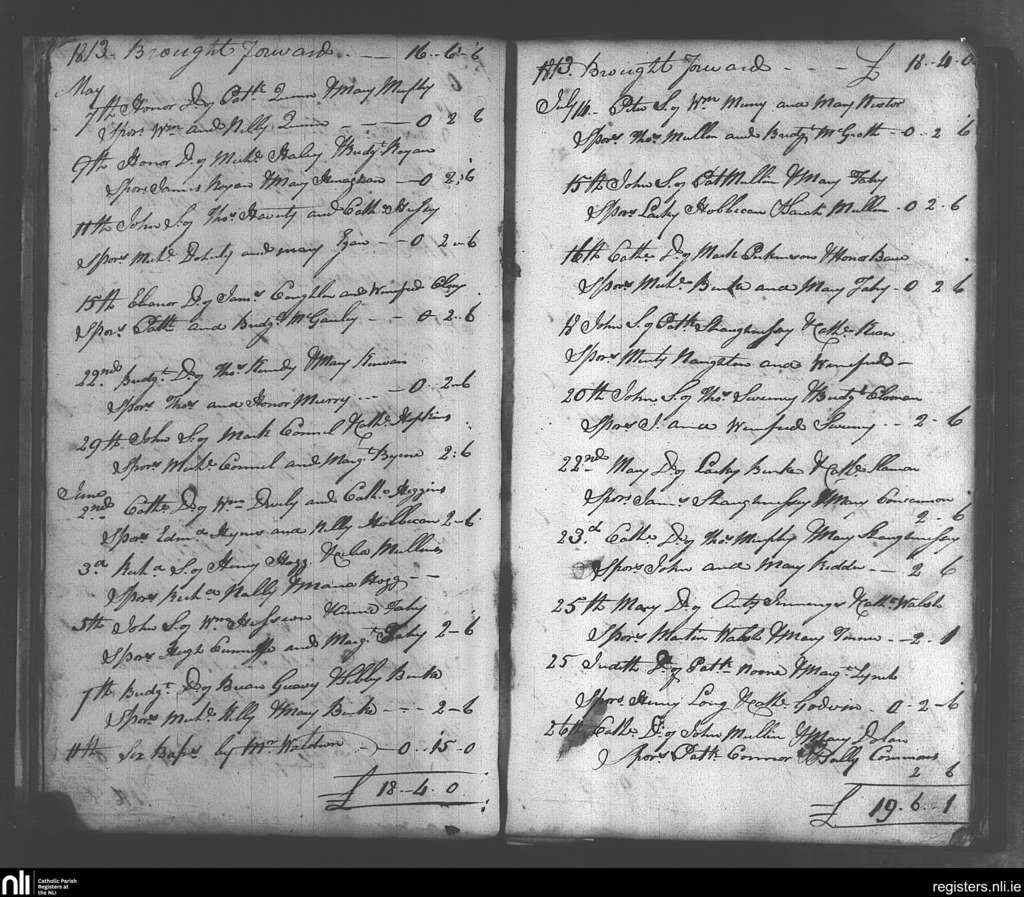 1813. Brought Forward .. — 16..6..6
May
7th Honor D. of Patk. Quinn & Mary Murphy
Spors Wm and Nilly Quinn — 0 2 6
9th Honor D. of Michl. Haley & Budgt. Rogan
Spors James Rogan & Mary Henaghan — 0 2:6
11th John S. of Thos. and Cathe.
Spors Michl. Doherty and mary Egan - - 0 2..6
15th Elianor D. of Jams. Coughlin and Winifred
Spors Patk. and Budgt. McGauly - - 0..2..6
22nd Budgt. D. of Thos. Kennedy & Mary Kirwan
Spors Thos and Honor Murry ... — 0..2..6
29th John S. of Mark Connel & Cathe. Hopkins
Spors Michl. Connel and Margt. Byrne 2:6
June
2nd Cathe. D. of Wm and Cathe. Higgins
Spors Edmd Hynes and Nilly Hobbican 2..6
3d Richd S. of Henry Hogg. & Celia Mullins
Spors Richd Nally & Maria Hogg - -
5th John S. of Wm & Fahy
Spors Hugh Cunniffe and Margt. Fahy 2-6
7th Budgt. D. of Brian & Burke
Spors Michl. Killy & Mary Burke - - - 2-6
11th Six Bapts. by Mr. Waldron — 0..15..0
£ 18..4..0
1813. Brought Forward - - - £ 18..4..0
July 14. Peter S. of Wm. Murry and Mary Nestor
Spors Thos. Mullin and Budgt. McGrath - 0..2..6
15th John S. of Pat Mullin & Mary Fahy
Spors Lacky Hobbican Mullin . 0 2..6
16th Cathe. D. of Mark Parkinson & Honor
Spors Michl. Burke and Mary Fahy - 0 2 6
18 John S. of Patk Shaughnessy & Cathe. Kean
Spors Naughton and Winifred —
20th John S. of Thos. Sweeny & Budgt.
Spors J. and Winifred Sweeny .. 2 - 6
22nd Mary D. of Lacky Burke & Cathe.
Spors Jams. Shaughnessy & Mary Concannon
2 - 6
23d Cathe. D. of Thos. Murphy & Mary Shaughnessy
Spors John and Mary - - 2 6
25th Mary D. of Jennings & Cathe. Walsh
Spors Martin Walsh & Mary - - 2..1
25 Judith D. of Patk. Noone & Margt. Lynch
Spors Henry Long & Cathe. Godwin . 0..2..6
26th Cathe. D. of John Mullin & Mary Dolan
Spors Patk. Connor & Sally Commons
2 6
£ 19..6..1
nli
Catholic Parish
Registers at
the NLI
registers.nli.ie